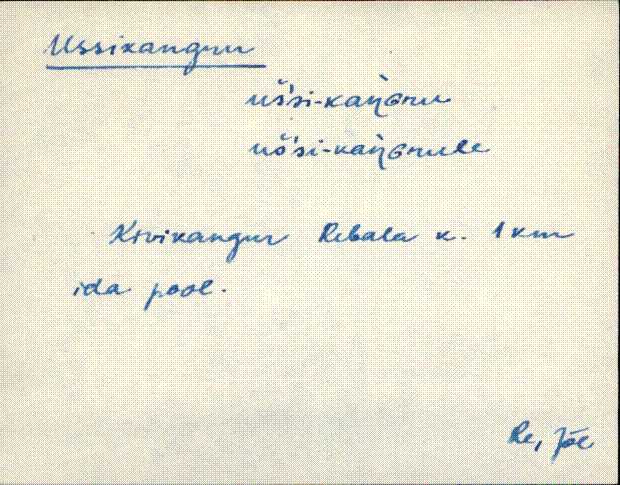 Ussikangur
uš́si-kaŋ̀Gru
uš́si-kaŋ̀Grulle
Kivikangur Rebala k. 1 km
ida pool.
Re, Jõe